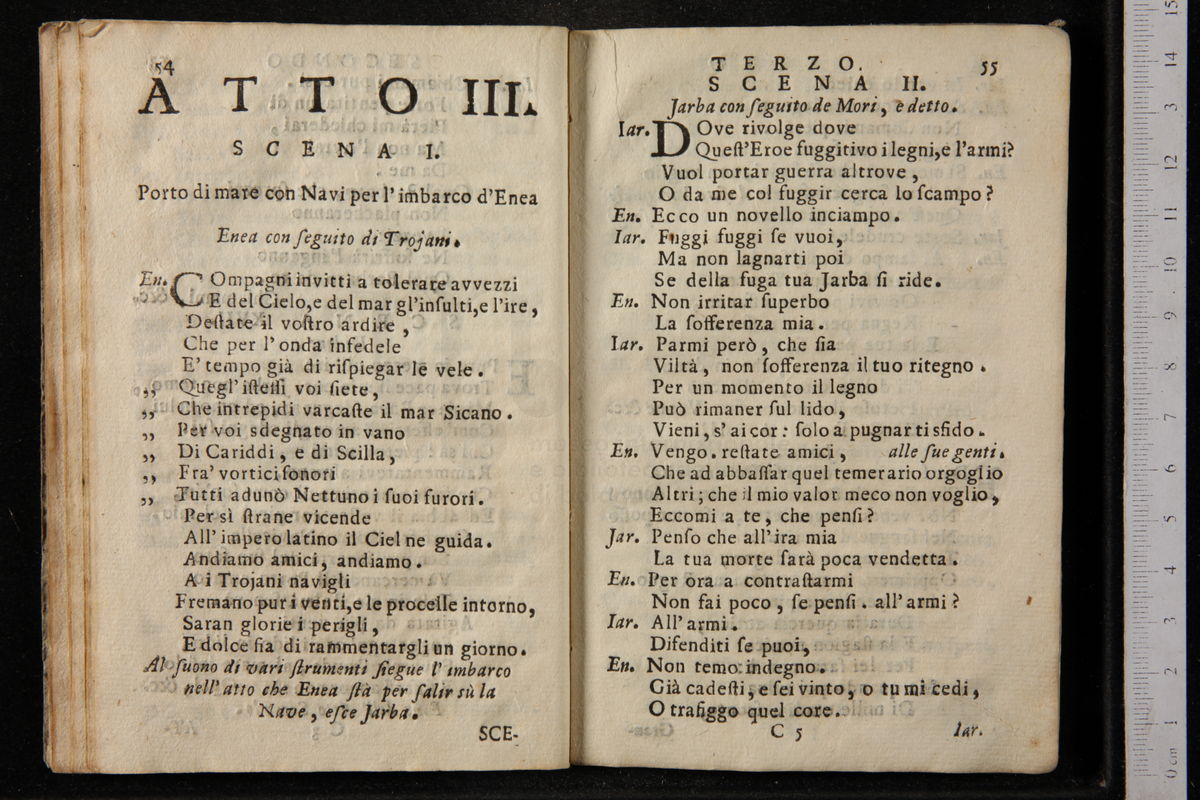 54
ATTO III.
SCENA I.
Porto di mare con Navi per l' imbarco d'Enea
Enea con ſeguito di Trojani.
En. COmpagni invitti a tolerare avvezzi
E del Cielo,e del mar gl'inſulti,e l'ire,
Deſtate il voſtro ardire ,
Che per l' onda infedele
E' tempo già di riſpiegar le vele .
,, Quegl' iſteſſi voi ſiete,
,, Che intrepidi varcaſte il mar Sicano .
,, Per voi sdegnato in vano
,, Di Cariddi , e di Scilla,
,, Fra' vortici ſonori
,, Tutti adunò Nettuno i ſuoi furori .
Per sì ſtrane vicende
All' impero latino il Ciel ne guida.
Andiamo amici, andiamo .
A i Trojani navigli
Fremano pur i venti,e le procelle intorno,
Saran glorie i perigli,
E dolce fia di rammentargli un giorno.
Al ſuono di vari ſtrumenti ſiegue l' imbarco
nell' atto che Enea ſtà per ſalir sù la
Nave , eſce Jarba.
SCE-
TERZO. 55
SCENA II.
Jarba con ſeguito de Mori , e detto.
Iar. DOve rivolge dove
Queſt'Eroe fuggitivo i legni,e l'armi?
Vuol portar guerra altrove ,
O da me col fuggir cerca lo ſcampo ?
En. Ecco un novello inciampo.
Iar. Fuggi fuggi ſe vuoi,
Ma non lagnarti poi
Se della fuga tua Jarba ſi ride.
En. Non irritar ſuperbo
La ſofferenza mia .
Iar. Parmi però , che ſia
Viltà , non ſofferenza il tuo ritegno .
Per un momento il legno
Può rimaner ſul lido,
Vieni , s' ai cor : ſolo a pugnar ti sfido .
En. Vengo . reſtate amici , alle ſue genti.
Che ad abbaſſar quel temerario orgoglio
Altri ; che il mio valor meco non voglio,
Eccomi a te, che penſi ?
Jar. Penſo che all' ira mia
La tua morte ſarà poca vendetta .
En. Per ora a contraſtarmi
Non fai poco , ſe penſi . all' armi ?
Iar. All' armi .
Difenditi ſe puoi,
En. Non temo: indegno.
Già cadeſti , e ſei vinto, o tu mi cedi ,
O trafiggo quel core.
C 5 Iar.